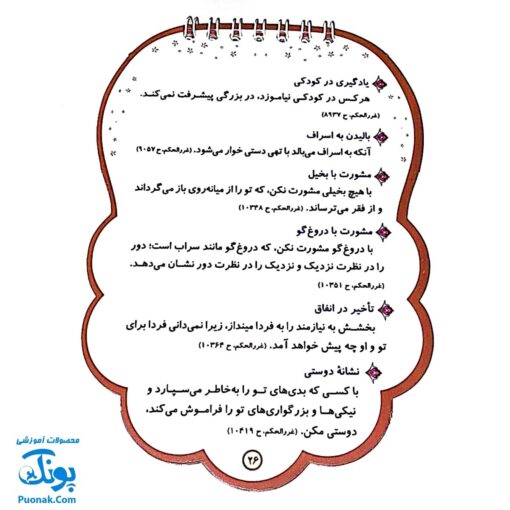 یادگیری در کودکی
هر کس در کودکی نیاموزد، در بزرگی پیشرفت نمی‌کند.
(غررالحکم، ح ۸۹۳۷)
بالیدن به اسراف
آنکه به اسراف می‌بالد با تهی دستی خوار می‌شود. (غررالحکم، ح ۹۰۵۷)
مشورت با بخیل
با هیچ بخیلی مشورت نکن، که تو را از میانه‌روی باز می‌گرداند
و از فقر می‌ترساند. (غررالحکم، ح ۱۰۳۴۸)
مشورت با دروغ‌گو
با دروغ‌گو مشورت نکن، که دروغ‌گو مانند سراب است؛ دور
را در نظرت نزدیک و نزدیک را در نظرت دور نشان می‌دهد.
(غررالحکم، ح ۱۰۳۵۱)
تأخیر در انفاق
بخشش به نیازمند را به فردا مینداز، زیرا نمی‌دانی فردا برای
تو و او چه پیش خواهد آمد. (غررالحکم، ح ۱۰۳۶۴)
نشانهٔ دوستی
با کسی که بدی‌های تو را به‌خاطر می‌سپارد و
نیکی‌ها و بزرگواری‌های تو را فراموش می‌کند،
دوستی مکن. (غررالحکم، ح ۱۰۴۱۹)
۲۶
محصولات آموزشی
پونک
Puonak.Com